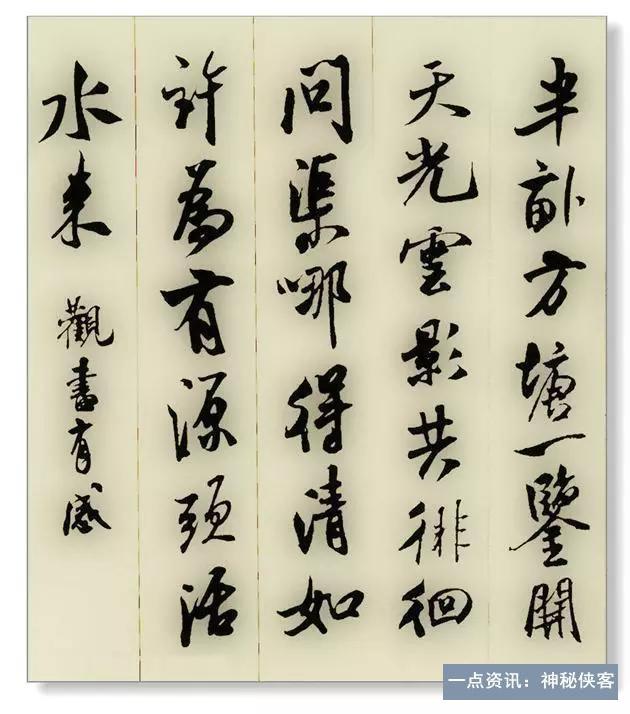 半畝方塘一鑒開
天光雲影共徘徊
問渠哪得清如
許為有源頭活
水来
觀書有感
一点资讯：神秘侠客